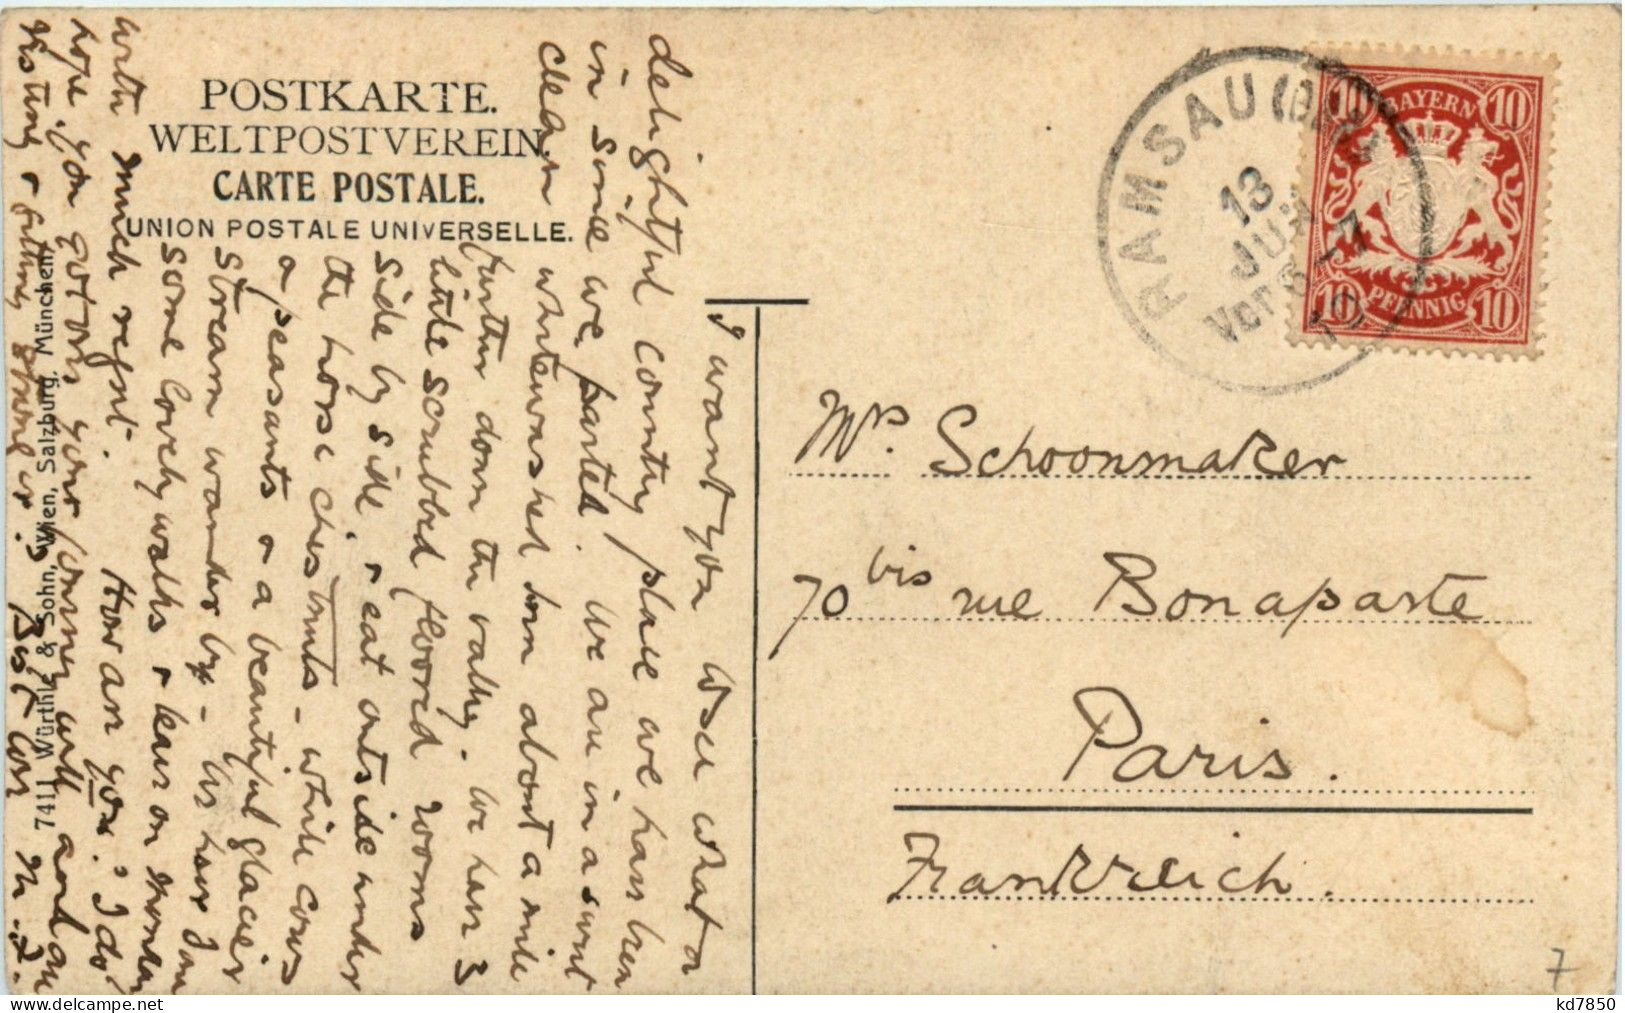 POSTKARTE.
WELTPOSTVEREIN.
CARTE POSTALE.
UNION POSTALE UNIVERSELLE.
I want you to see what a
delightful country place we have been
in since we parted. We are in a sweet
clean whitewashed inn about a mile
further down the valley. We have 3
little scrubbed floored rooms
side by side, & eat outside under
the horse chestnuts – while cows
& peasants & a beautiful glacier
stream wander by – We have had
some lovely walks & leave on Monday
with much regret. How are you? I do
hope you got on your journey well and are
resting & getting strong. Best love
7411 Würthle & Sohn, Wien, Salzburg, München.
RAMSAU
13
JUL
Vor
BAYERN
10 10
10 PFENNIG 10
Mrs. Schoonmaker
70 bis rue Bonaparte
Paris.
Frankreich.
7
kd7850